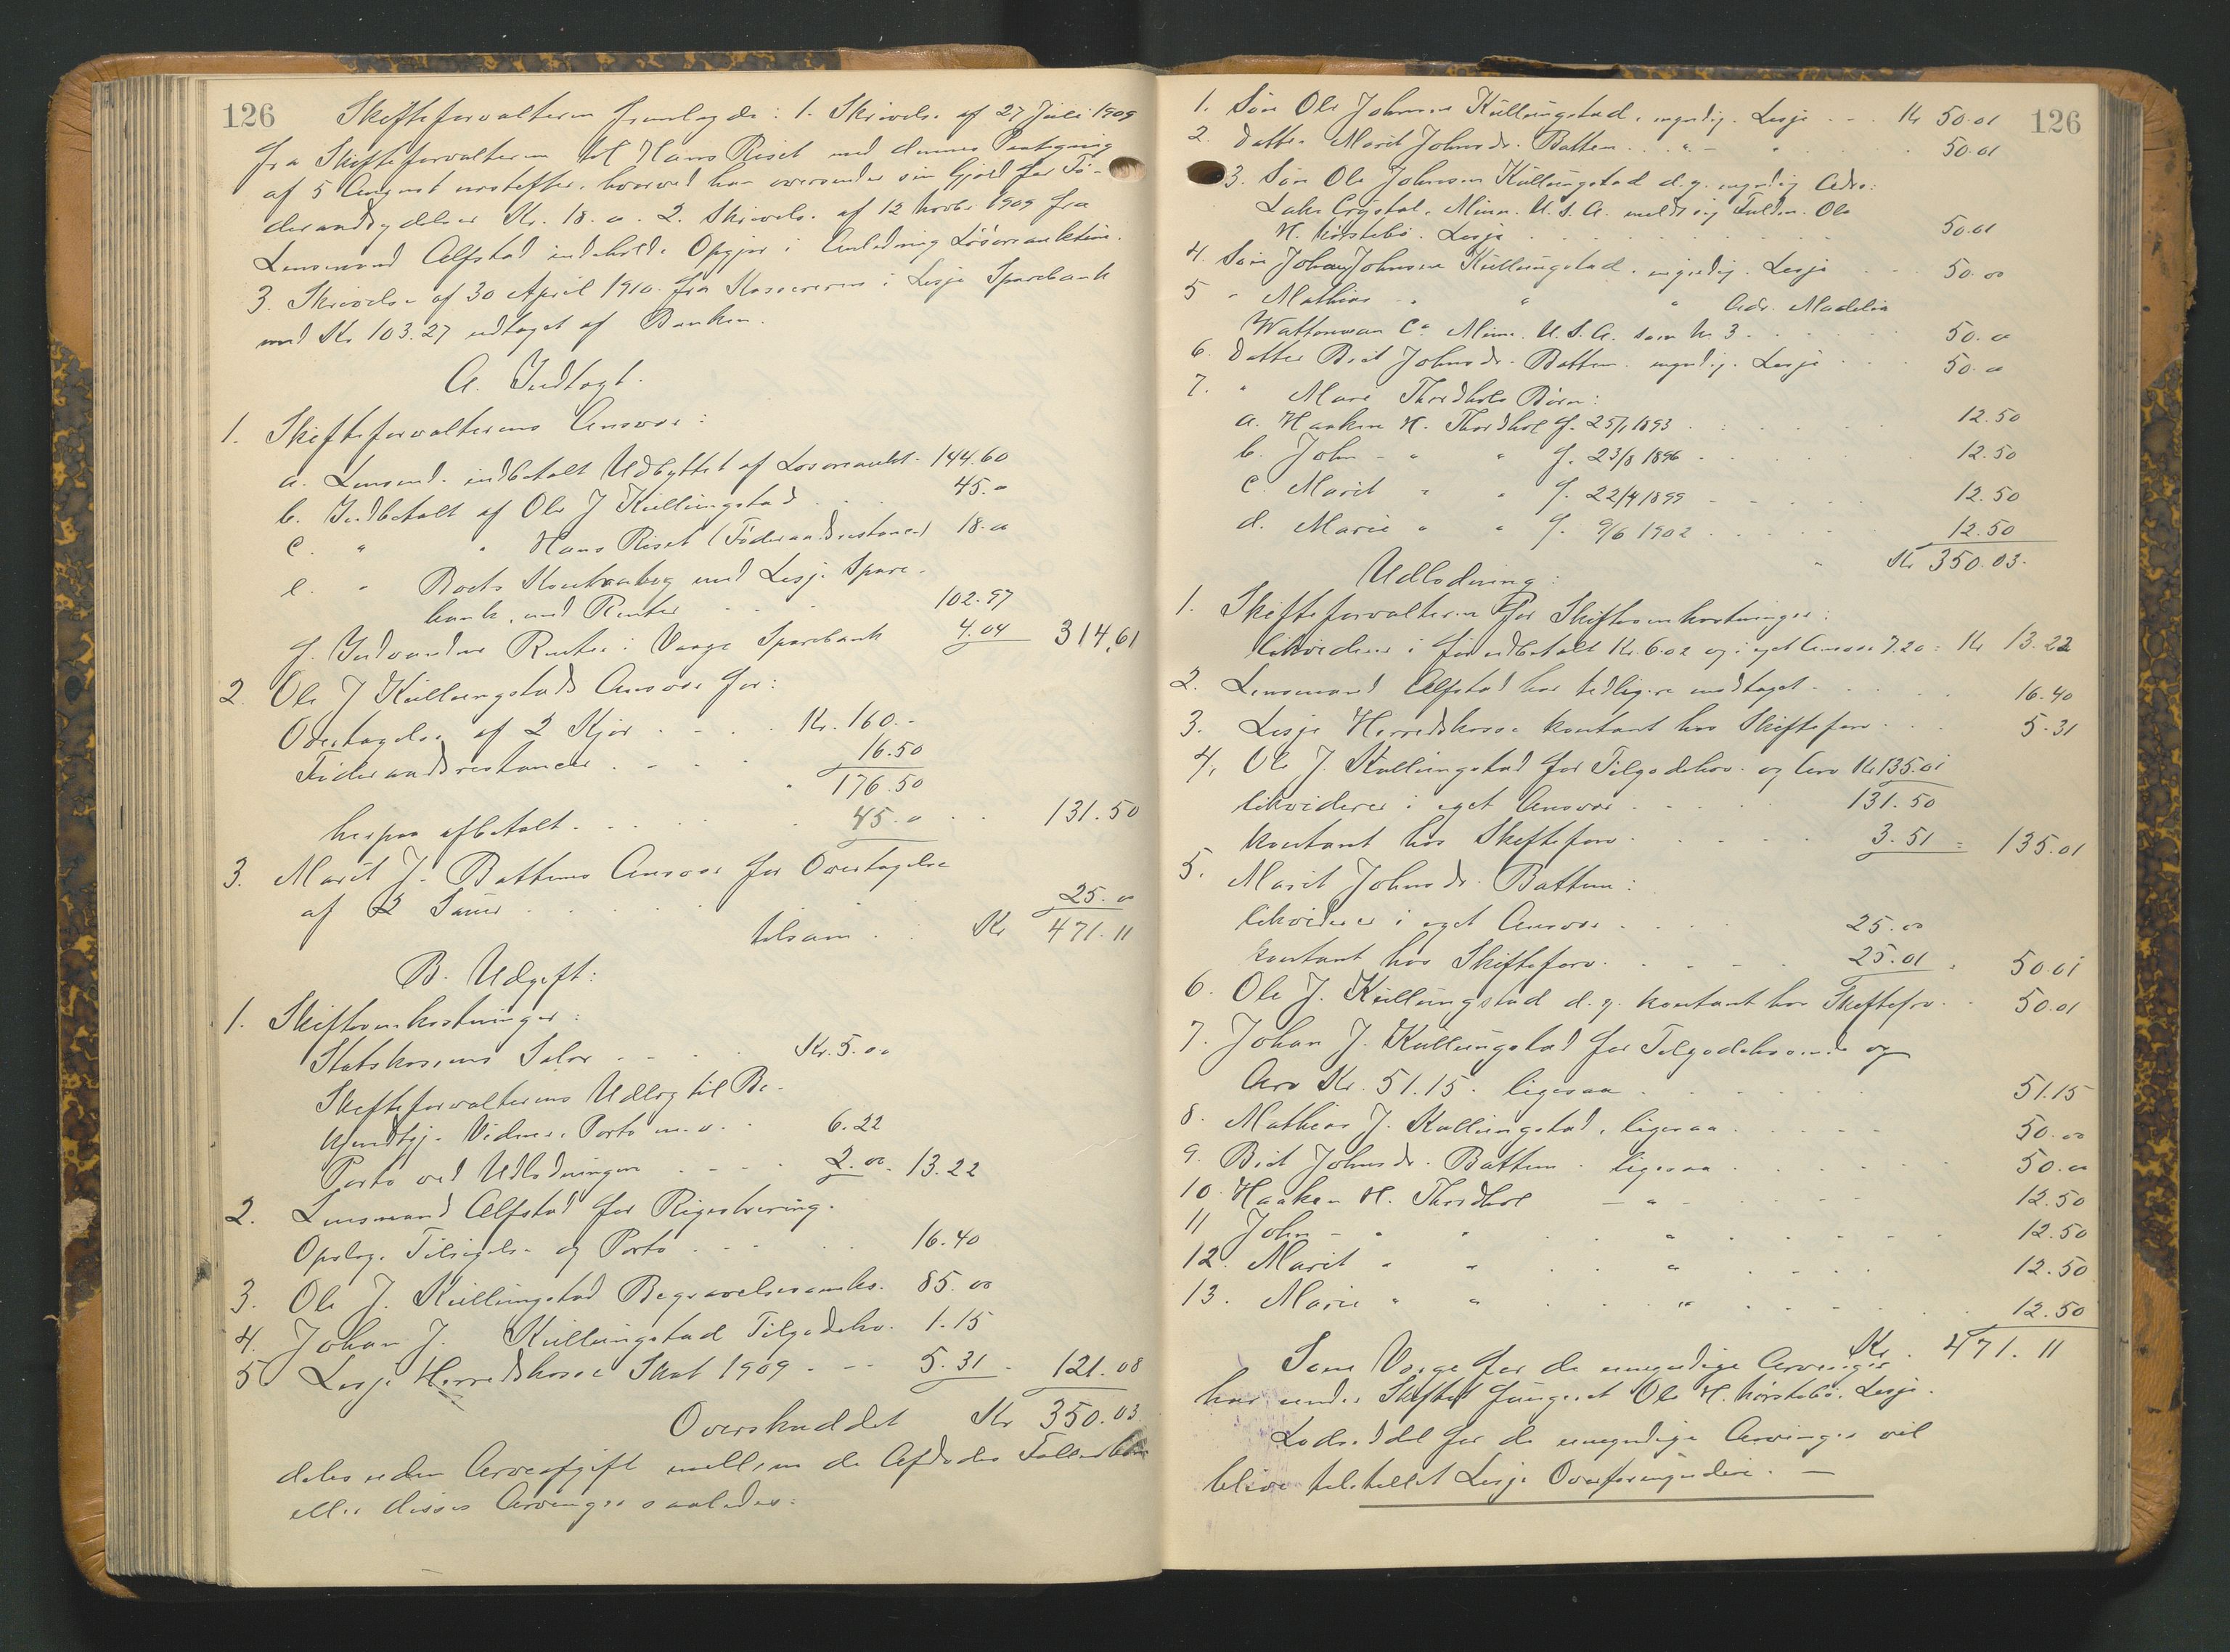 126
Skifteforvalteren fremlagde: 1. Skrivelse af 27 Juli 1909
fra Skifteforvalteren til Hans Riset med dennes Paategning
af 5 August næstefter, hvorved han oversender sin Gjæld for Fø-
deraadsydelser Kr. 18.00. 2. Skrivelse af 12 Novbr 1909 fra
Lensmand Alfstad indehold. Opgjør i Anledning Løsøreauktion.
3. Skrivelse af 30 April 1910 fra Kassereren i Lesje Sparebank
med Kr 103.27 udtaget af Banken.
A. Indtægt.
1. Skifteforvalterens Ansvar:
a. Lensmd. indbetalt Udbyttet af Løsøreaukt. 144.60
b. Indbetalt af Ole J Kullungstad . . . 45.00
c. " " Hans Riset (Føderaadsrestance) 18.00
e. " Boets Kontrabog med Lesje Spare-
bank, med Renter . . . 102.97
f. Indvundne Renter i Vaage Sparebank 4.04 314.61
2. Ole J Kullungstads Ansvar for:
Overtagelse af 2 Kjør . . . . Kr. 160.-
Føderaadsrestancer . . . . 16.50
176.50
herpaa afbetalt . . . . . 45.00 . . 131.50
3. Marit J. Battens Ansvar for Overtagelse
af 2 Sauer . . . . . . 25.00
tilsam . . Kr 471.11
B. Udgift:
1. Skifteomkostninger:
Statskassens Salær . . . . Kr. 5.00
Skifteforvalterens Udlæg til Be-
kjendtgj. Vidner, Porto m.v. . 6.22
Porto ved Udlodningen . . . . 2.00. 13.22
2. Lensmand Alfstad for Registrering,
Opslag, Tilsigelse og Porto . . . . 16.40
3. Ole J. Kullungstad Begravelsesomks. 85.00
4. Johan J. Kullungstad Tilgodehv. 1.15
5. Lesje Herredskasse Skat 1909 . - - 5.31 . 121.08
Overskuddet Kr 350.03
deles uden Arveafgift mellem de Afdødes Fællesbørn
eller disses Arvinger saaledes:
126
1. Søn Ole Johnsen Kullungstad, myndig, Lesje . . . Kr 50.01
2. Datter Marit Johnsdr. Batten . . " - " . . . 50.01
3. Søn Ole Johnsen Kullungstad d.y. myndig Adr.:
Lake Crystal, Minn. U.S.A. meldt sig Fuldm. Ole
H. Kørstebø. Lesje . . . . . . . . 50.01
4. Søn Johan Johnsen Kullungstad, myndig, Lesje . . 50.00
5 " Mathias - " " " Adr. Madelia
Wattonwan Co Minn. U.S.A. som Nr 3 . . . . . 50.00
6. Datter Brit Johnsdr. Batten, myndig, Lesje . . . 50.00
7. " Mari Thordhols Børn:
a. Haaken H. Thordhol f. 25/1 1893 . . . . . 12.50
b. John - " " f. 23/8 1896 . . . . . 12.50
c. Marit " " f. 22/4 1899 . . . . . 12.50
d. Marie " " f. 9/6 1902 . . . . . 12.50
" Kr 350.03.
Udlodning:
1. Skifteforvalteren for Skifteomkostninger:
likviderer i forudbetalt Kr. 6.02 og i eget Ansvar 7.20 = Kr 13.22
2. Lensmand Alfstad har tidligere modtaget . . . . 16.40
3. Lesje Herredskasse kontant hos Skifteforv . . . 5.31
4. Ole J. Kullungstad for Tilgodehav. og Arv Kr 135.01
likviderer i eget Ansvar . . . . 131.50
kontant hos Skifteforv . . . . . 3.51 = 135.01
5. Marit Johnsdr. Batten:
likviderer i eget Ansvar . . . . 25.00
kontant hos Skifteforv. . . . . 25.01 . 50.01
6. Ole J. Kullungstad d.y. kontant hos Skifteforv. . 50.01
7. Johan J. Kullungstad for Tilgodehavende og
Arv Kr. 51.15. ligesaa . . . . . . 51.15
8. Mathias J. Kullungstad, ligesaa . . . . . 50.00
9. Brit Johnsdr. Batten . ligesaa . . . . . . 50.00
10. Haaken H. Thordhol - " - . . . . . 12.50
11 John - " " . . " . . . . . 12.50
12. Marit " " . . " . . . . 12.50
13. Marie " " . . " . . . . . 12.50
Kr. 471.11
Som Værge for de umyndige Arvinger
har under Skiftet fungeret Ole H. Kørstebø. Lesje.
Lodseddel for de umyndige Arvinger vil
blive tilstillet Lesje Overformynderi. —